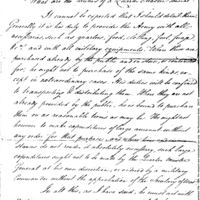 What are the duties of a Quarter Master General
It cannot be expected that I should detail them.
Generally it is his duty to provide the Army with all
necessaries, such as quarters, food, clothing, fuel, forage
&c. and with all military equipments. When these are
purchased already by the public and in store, or
for, he ought not to purchase of the same kind, ex-
cept in extraordinary cases. His duties ought to be
to transporting & distributing them. When they are not
already provided by the public, he is bound to purchase
them on as reasonable terms as may be. He ought not
however to make expenditures of large amount without
any order for that purpose,
stances do not render it absolutely necessary, such large
expenditures ought not to be made by the Quarter master
General at his own discretion, or ordered by a military
Commander without the approbation of the
To all this, as I have said, he must act with